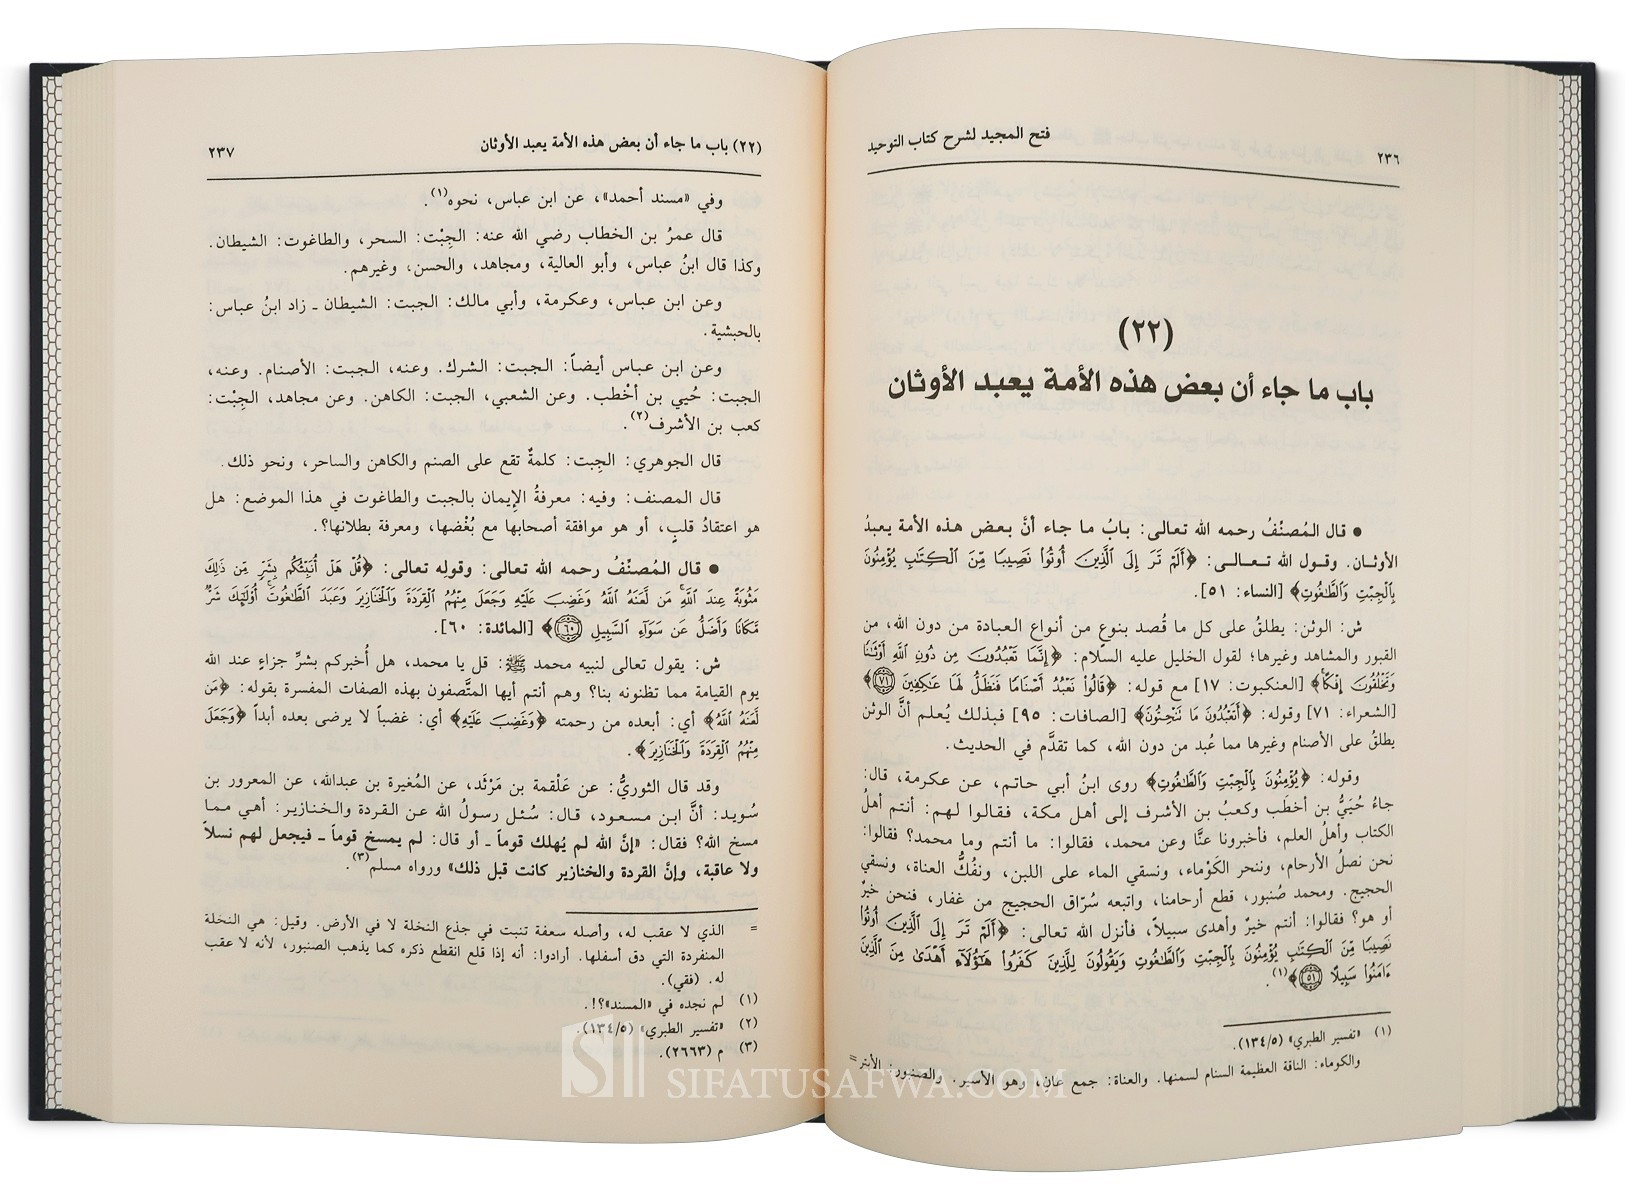 ٢٣٦ فتح المجيد لشرح كتاب التوحيد
(٢٢)
باب ما جاء أن بعض هذه الأمة يعبد الأوثان
● قال المُصنّفُ رحمه الله تعالى: بابُ ما جاء أنَّ بعض هذه الأمة يعبدُ
الأوثان. وقول الله تعالى: ﴿أَلَمْ تَرَ إِلَى الَّذِينَ أُوتُوا نَصِيبًا مِّنَ الْكِتَابِ يُؤْمِنُونَ
بِالْجِبْتِ وَالطَّاغُوتِ﴾ [النساء: ٥١].
ش: الوثن: يطلقُ على كل ما قُصد بنوعٍ من أنواع العبادة من دون الله، من
القبور والمشاهد وغيرها؛ لقول الخليل عليه السلام: ﴿إِنَّمَا تَعْبُدُونَ مِن دُونِ اللَّهِ أَوْثَانًا
وَتَخْلُقُونَ إِفْكًا﴾ [العنكبوت: ١٧] مع قوله: ﴿قَالُوا نَعْبُدُ أَصْنَامًا فَنَظَلُّ لَهَا عَاكِفِينَ ٧١﴾
[الشعراء: ٧١] وقوله: ﴿أَتَعْبُدُونَ مَا تَنْحِتُونَ﴾ [الصافات: ٩٥] فبذلك يُعلم أنَّ الوثن
يطلقُ على الأصنام وغيرها مما عُبد من دون الله، كما تقدَّم في الحديث.
وقوله: ﴿يُؤْمِنُونَ بِالْجِبْتِ وَالطَّاغُوتِ﴾ روى ابنُ أبي حاتم، عن عكرمة، قال:
جاءُ حُيَيُّ بن أخطَب وكعبُ بن الأشرف إلى أهل مكة، فقالوا لهم: أنتم أهلُ
الكتاب وأهلُ العلم، فأخبرونا عنَّا وعن محمد، فقالوا: ما أنتم وما محمد؟ فقالوا:
نحن نصلُ الأرحام، وننحر الكَوْماء، ونسقي الماء على اللبن، ونفُكُّ العناة، ونسقي
الحجيج. ومحمد صُنبور، قطع أرحامنا، واتبعه سُرّاق الحجيج من غفار، فنحن خيرٌ
أو هو؟ فقالوا: أنتم خيرٌ وأهدى سبيلاً، فأنزل الله تعالى: ﴿أَلَمْ تَرَ إِلَى الَّذِينَ أُوتُوا
نَصِيبًا مِّنَ الْكِتَابِ يُؤْمِنُونَ بِالْجِبْتِ وَالطَّاغُوتِ وَيَقُولُونَ لِلَّذِينَ كَفَرُوا هَؤُلَاءِ أَهْدَى مِنَ الَّذِينَ
ءَامَنُوا سَبِيلًا ٥١﴾(١).
(١) «تفسير الطبري» (١٣٤/٥).
والكوماء: الناقة العظيمة السنام لسمنها. والعناة: جمع عانٍ، وهو الأسير. والصنبور: الأبتر =
(٢٢) باب ما جاء أن بعض هذه الأمة يعبد الأوثان ٢٣٧
وفي «مسند أحمد»، عن ابن عباس، نحوه(١).
قال عمرُ بن الخطاب رضي الله عنه: الجِبْت: السحر، والطاغوت: الشيطان.
وكذا قال ابنُ عباس، وأبو العالية، ومجاهد، والحسن، وغيرهم.
وعن ابن عباس، وعكرمة، وأبي مالك: الجبت: الشيطان ـ زاد ابنُ عباس:
بالحبشية.
وعن ابن عباس أيضاً: الجبت: الشرك. وعنه، الجبت: الأصنام. وعنه،
الجبت: حُيي بن أخْطب. وعن الشعبي، الجبت: الكاهن. وعن مجاهد، الجِبْت:
كعب بن الأشرف(٢).
قال الجوهري: الجِبت: كلمةٌ تقع على الصنم والكاهن والساحر، ونحو ذلك.
قال المصنف: وفيه: معرفةُ الإيمان بالجبت والطاغوت في هذا الموضع: هل
هو اعتقادُ قلبٍ، أو هو موافقة أصحابها مع بُغْضها، ومعرفة بطلانها؟.
● قال المُصنّفُ رحمه الله تعالى: وقوله تعالى: ﴿قُلْ هَلْ أُنَبِّئُكُم بِشَرٍّ مِّن ذَلِكَ
مَثُوبَةً عِندَ اللَّهِ مَن لَّعَنَهُ اللَّهُ وَغَضِبَ عَلَيْهِ وَجَعَلَ مِنْهُمُ الْقِرَدَةَ وَالْخَنَازِيرَ وَعَبَدَ الطَّاغُوتَ أُولَئِكَ شَرٌّ
مَّكَانًا وَأَضَلُّ عَن سَوَاءِ السَّبِيلِ ٦٠﴾ [المائدة: ٦٠].
ش: يقول تعالى لنبيه محمد ﷺ: قل يا محمد، هل أُخبركم بشرِّ جزاءٍ عند الله
يوم القيامة مما تظنونه بنا؟ وهم أنتم أيها المتَّصفون بهذه الصفات المفسرة بقوله: ﴿مَن
لَّعَنَهُ اللَّهُ﴾ أي: أبعده من رحمته ﴿وَغَضِبَ عَلَيْهِ﴾ أي: غضباً لا يرضى بعده أبداً ﴿وَجَعَلَ
مِنْهُمُ الْقِرَدَةَ وَالْخَنَازِيرَ﴾.
وقد قال الثوريُّ: عن عَلْقمة بن مَرْثَد، عن المُغيرة بن عبدالله، عن المعرور بن
سُويد: أنَّ ابن مسعود، قال: سُئل رسولُ الله عن القردة والخنازير: أهي مما
مسخ الله؟ فقال: «إنَّ الله لم يُهلك قوماً ـ أو قال: لم يمسخ قوماً ـ فيجعل لهم نسلاً
ولا عاقبة، وإنَّ القردة والخنازير كانت قبل ذلك» ورواه مسلم(٣).
= الذي لا عقب له، وأصله سعفة تنبت في جذع النخلة لا في الأرض. وقيل: هي النخلة
المنفردة التي دق أسفلها. أرادوا: أنه إذا قلع انقطع ذكره كما يذهب الصنبور، لأنه لا عقب
له. (فقي).
(١) لم نجده في «المسند»؟!.
(٢) «تفسير الطبري» (١٣٤/٥).
(٣) م (٢٦٦٣).
SIFATUSAFWA.COM